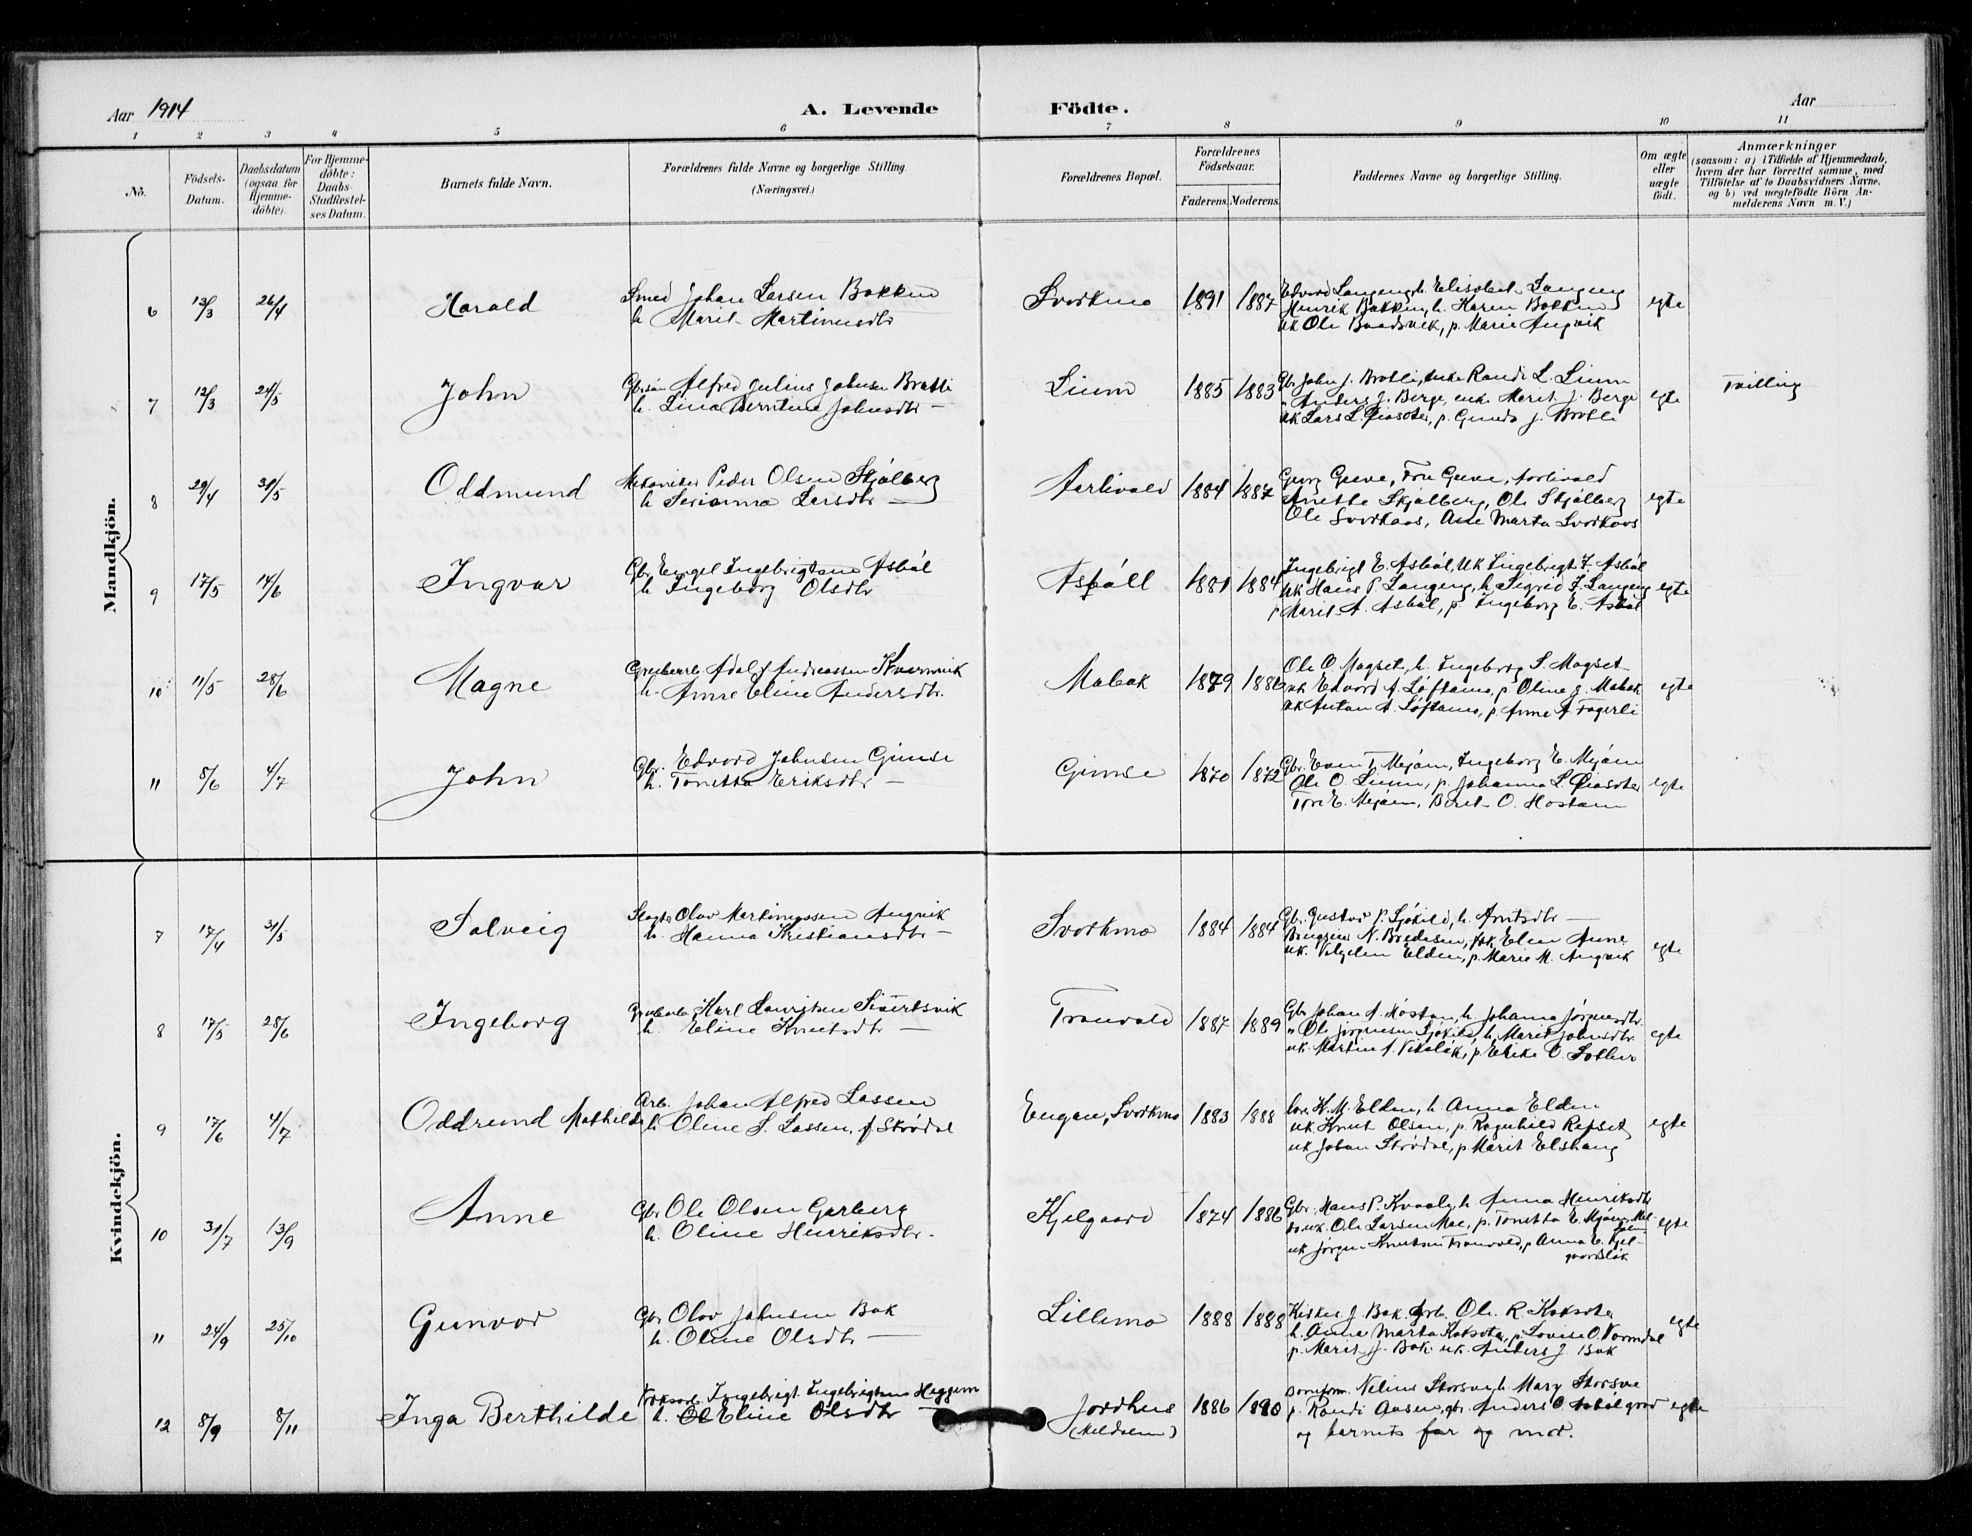 Aar 1914 A. Levende Födte. Aar
1 2 3 4 5 6 7 8 9 10 11
No.
Födsels-Datum.
Daabsdatum (ogsaa for Hjemme-döbte).
For Hjemme-döbte: Daabs-Stadfæstel-ses Datum.
Barnets fulde Navn.
Forældrenes fulde Navne og borgerlige Stilling. (Næringsvei.)
Forældrenes Bopæl.
Forældrenes Födselsaar.
Faderens. Moderens.
Faddernes Navne og borgerlige Stilling.
Om ægte eller uægte födt.
Anmærkninger
(saasom: a) i Tilfælde af Hjemmedaab, hvem der har forrettet samme, med Tilföielse af to Daabsvidners Navne, og b) ved uegtefödte Börn An-melderens Navn m. V.)
Mandkjön.
6 13/3 26/4 Harald
Smed Johan Larsen Bakken
h. Marit Martinusdtr
Svorkmo 1891 1887
Edvard Langeng, h. Elisabet Langeng
Henrik Bakken, h. Karen Bakken
uk Ole Baadsvik, p. Marie Angvik
egte
7 12/3 24/5 John
Alfred Julius Johnsen Bratli
h. Lina Berntine Johnsdtr —
Lium 1885 1883
Gbr John J. Bratli, enke Randi L. Lium
" Anders J. Berge, enk. Marit J. Berge
uk Lars L. p. Gunda J. Bratli
egte Tvilling
8 29/4 31/5 Oddmund
Mekaniker Peder Olsen Skjølberg
h. Serianna Larsdtr —
Aarlivold 1884 1887
Georg Greve, Fru Greve, Aarlivold
Anetta Skjølberg, Ole Skjølberg
Ole Svorkaas, Ane Marta Svorkaas
egte
9 17/5 14/6 Ingvar
Gbr. Engel Ingebrigtsen Asbøl
h. Ingeborg Olsdtr
Asbøll 1881 1884
Ingebrigt E. Asbøl, uk Ingebrigt I. Asbøl
uk Hans P. Langeng, h. Sigrid I. Langeng
p Marit A. Asbøl, p. Ingeborg E. Asbøl
egte
10 11/5 28/6 Magne
Grubearb. Adolf Andreassen Kvernvik
h. Anne Eline Andersdtr.
Mabak 1879 1886
Ole O. Magset, h. Ingeborg S. Magset
uk Edvard A. Løftamo, p. Oline J. Mabak
uk Anton A. Løftamo, p Anne A Fagerli
egte
11 8/6 4/7 John
Gbr. Edvard Johnsen Gimse
h. Tonetta Eriksdtr —
Gimse 1870 1872
Gbr. Even T. Mejøen, Ingeborg E. Mejøen
Ole O. Lium, p. Johanna L.
Tore E. Mejøen, Beret O. Hostam
egte
Kvindekjön.
7 17/4 31/5 Solveig
Olav Martinussen Angvik
h. Hanna Kristiansdtr —
Svorkmo 1884 1884
Gbr. Gustav P. Sjøkild, h. Arntsdtr —
N. Bredesen, Elen Anne
uk. Vilhelm Elden, p. Marie M. Angvik
egte
8 17/5 28/6 Ingeborg
Grubearb. Karl Lauritsen Sivertsvik
h. Eline Knutsdtr —
Tranvold 1887 1889
Gbr Johan A. Høstan, h. Johanna Jørgensdtr.
" Ole Jørgensen Sjøkild, h. Marit Johnsdtr.
uk. Martin A. Vikaløk, p. Erika O Solher
egte
9 17/6 4/7 Oddrund Mathilde
Arb. Johan Alfred Lassen
h. Oline S. Lassen, f Strødal
Engan, Svorkmo 1883 1888
K. M. Elden, h Anna Elden
uk. Knut Olsen, p. Ragnhild Repset
uk Johan Strødal, p. Marit Elshaug
egte
10 31/7 13/9 Anne
Gbr Ole Olsen Garberg
h. Oline Henriksdtr.
Kjelgaard 1874 1886
Gbr. Hans P. Kvaale, h. Anna Henriksdtr
uk. Ole Larsen Moe, p. Tonetta E. Mjøen, Mel-
uk Jørgen Knutsen Tranvold, p Anna E. Kjel-
gaardsløk
egte
11 24/9 25/10 Gunvor
Gbr Olav Johnsen Bak
h. Oline Olsdtr —
Lillemo 1888 1888
J Bak, Arb. Ole R. Koksøta
h. Anna Marta Koksøta, p. Lovise O. Vormdal
p. Marit J. Bak, uk. Anders J. Bak
egte
12 8/9 8/11 Inga Berthilde
Ingebrigt Ingebrigtsen Heggem
h. Eline Olsdtr —
Jordhus (Meldalen) 1886 1890
Nelius Storsve, h. Mary Storsve
p. Randi Aasen, gbr. Anders O Asbølgaard
og barnets far og mor.
egte